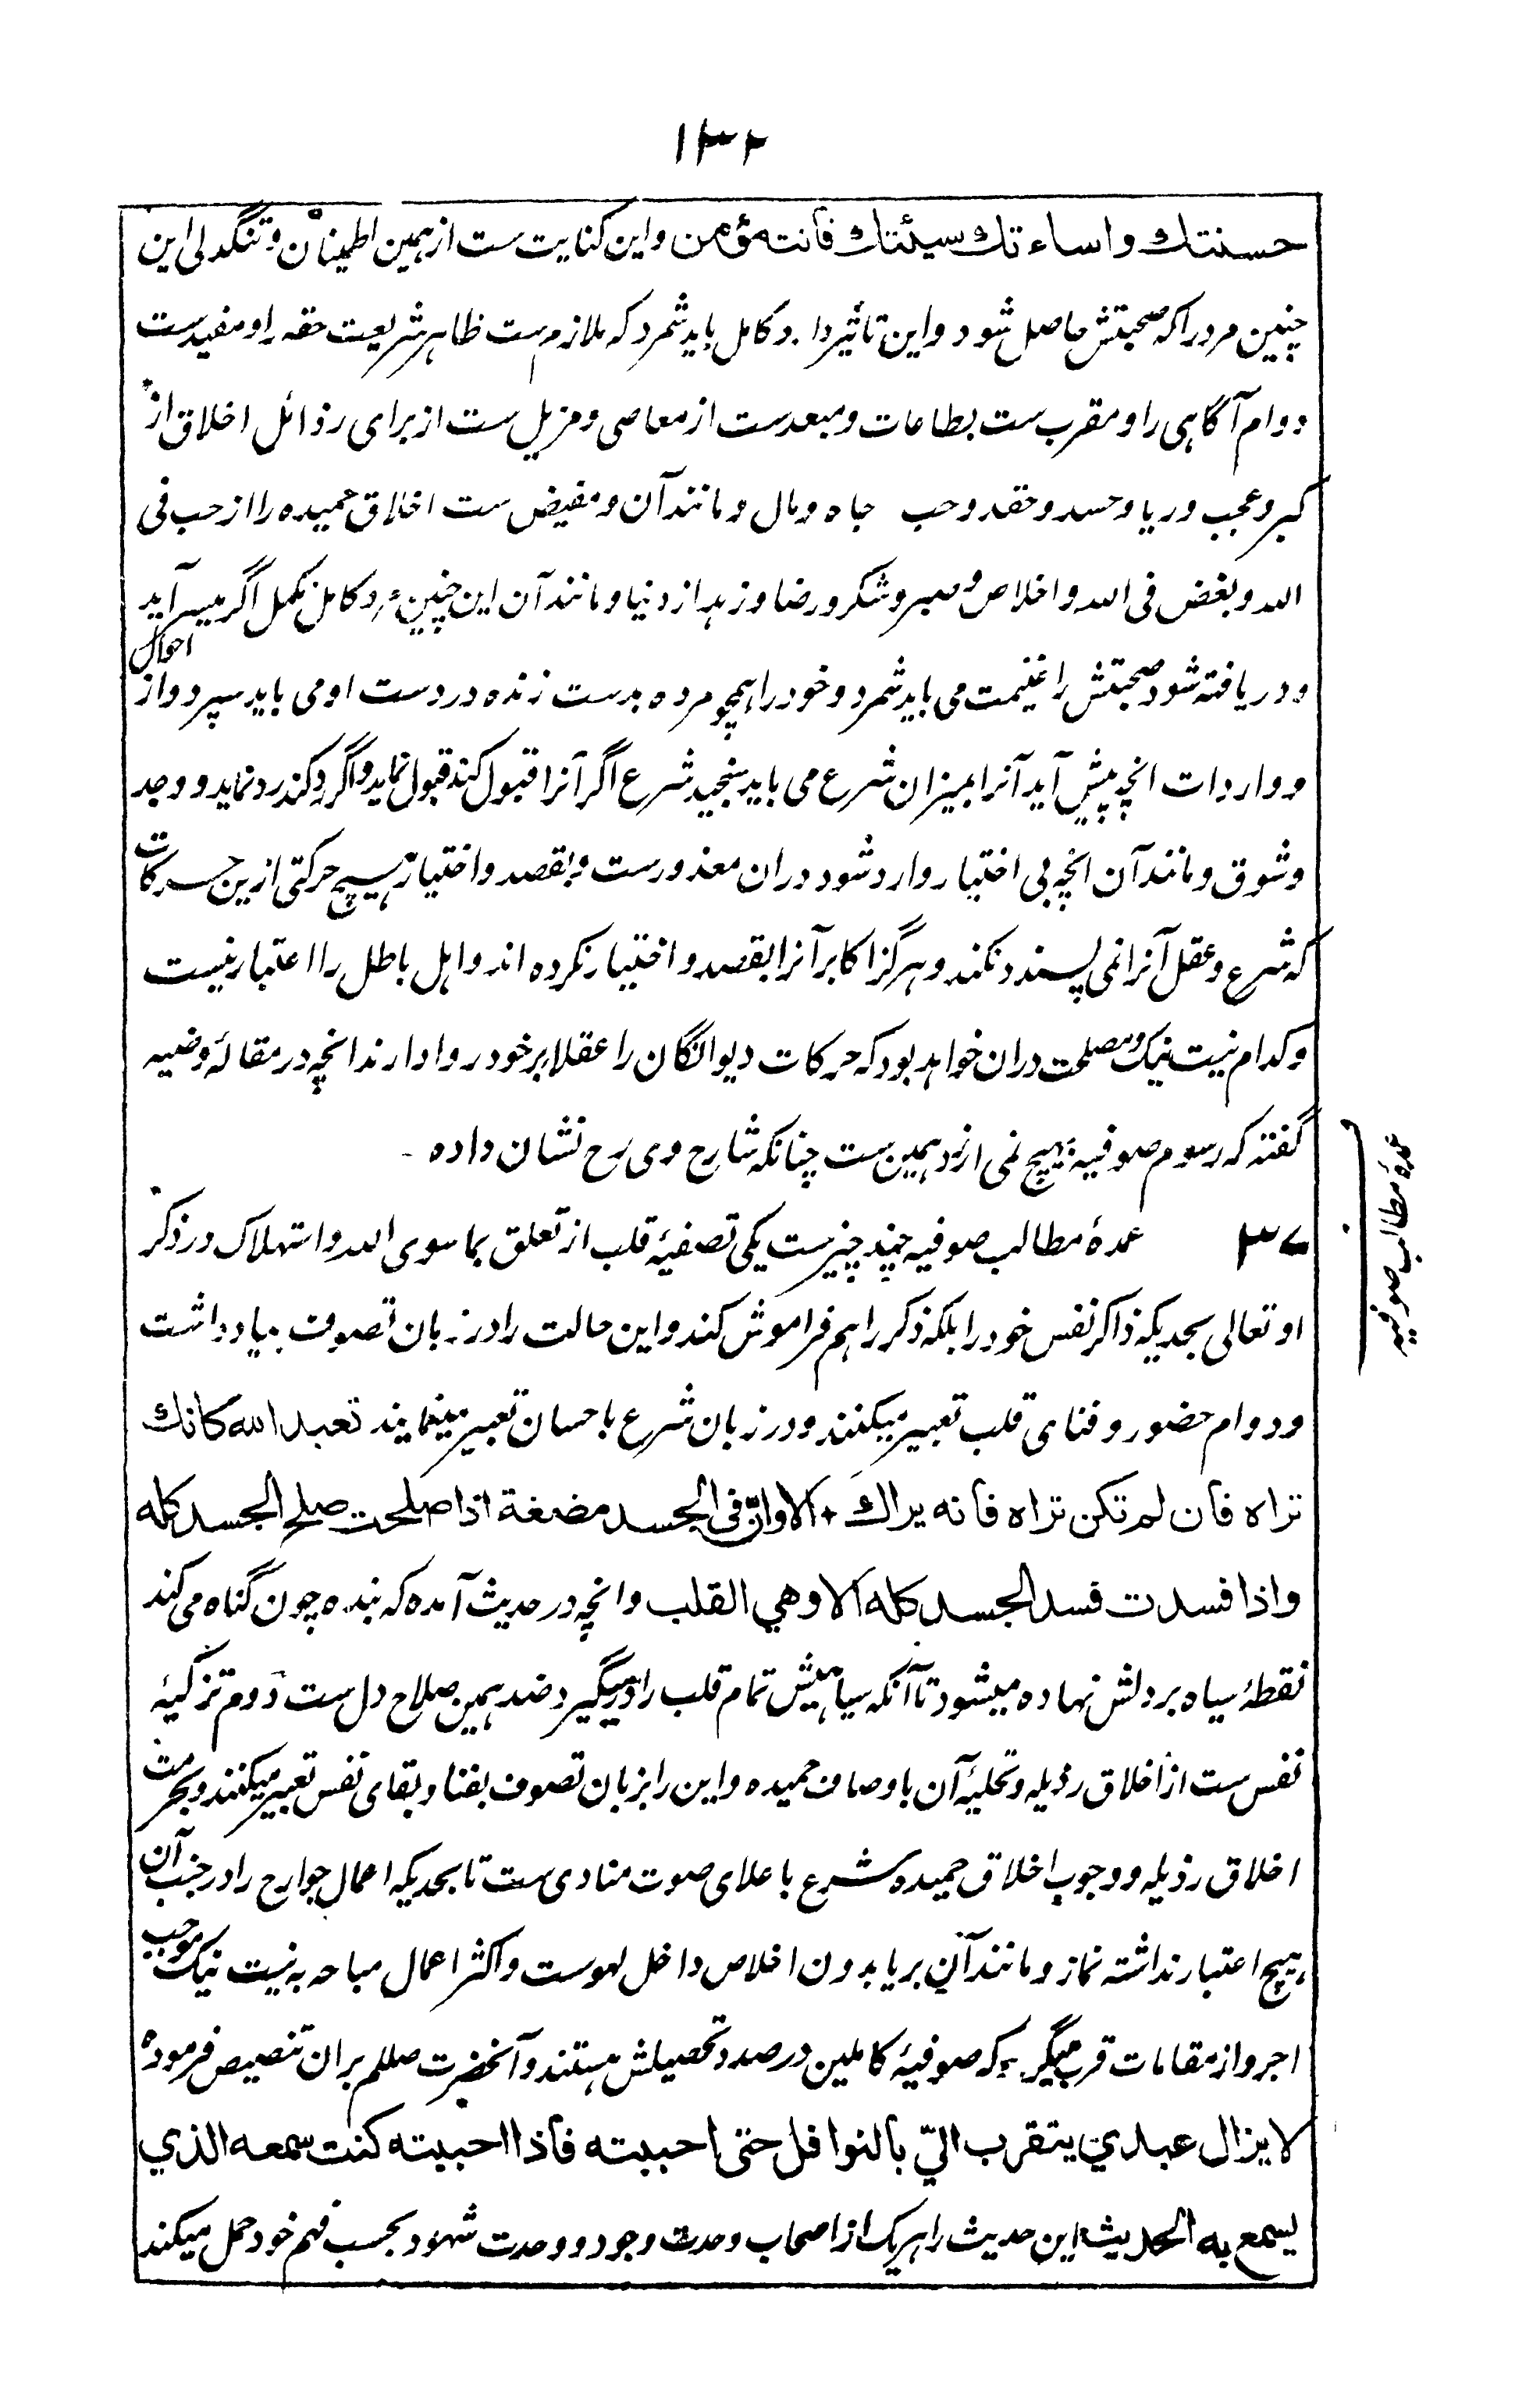 ۱۳۲
حسنتك واساءتك سيئتك فأنت مؤمن واین کنایت ست از همین اطمینان وتنگدلی این
چنین مرد را که صحبتش حاصل شود واین تاثیر دارد کامل باید شمرد که ملازم ست ظاهر شریعت حقه را ومفید ست
دوام آگاهی را ومقرب ست بطاعات ومبعد ست از معاصی ومزیل ست از برای رذائل اخلاق از
کبر وعجب وریا وحسد وحقد وحب جاه ومال ومانند آن ومفیض ست اخلاق حمیده را از حب فی
الله وبغض فی الله واخلاص وصبر وشکر ورضا وزهد از دنیا ومانند آن این چنین مرد کامل مکمل اگر میسر آید
ودریافته شود صحبتش را غنیمت می باید شمرد وخود را همچو مرده بدست زنده در دست او می باید سپرد واز احوال
وواردات انچه پیش آید آنرا بمیزان شرع می باید سنجید شرع اگر آنرا قبول کند قبول نماید واگر رد کند رد نماید ووجد
وشوق ومانند آن انچه بی اختیار وارد شود دران معذورست وبقصد واختیار هیچ حرکتی ازین حرکات
که شرع وعقل آنرا نمی پسندد نکند وهرگز اکابر آنرا بقصد واختیار نکرده اند واهل باطل را اعتبار نیست
وکدام نیت نیک ومصلحت دران خواهد بود که حرکات دیوانگان را عقلا بر خود روا دارند انچه در مقالۂ وضیه
گفته که رسوم صوفیه بهیچ نمی ارزد همین ست چنانکه شارح وی رح نشان داده -
۳۷ عمدۂ مطالب صوفیه چند چیز ست یکی تصفیۂ قلب از تعلق بما سوی الله واستهلاک در ذکر
او تعالی بحدیکه ذاکر نفس خود را بلکه ذکر را هم فراموش کند واین حالت را در زبان تصوف بیاد داشت
ودوام حضور وفنای قلب تعبیر میکنند ودر زبان شرع باحسان تعبیر مینمایند تعبد الله كانك
تراه فأن لم تكن تراه فأنه يراك + الا وانّ في الجسد مضغة اذا صلحت صلح الجسد كله
واذا فسدت فسد الجسد كله الا وهي القلب وانچه در حدیث آمده که بنده چون گناه می کند
نقطۂ سیاه بر دلش نهاده میشود تا آنکه سیاهیش تمام قلب را درمیگیرد ضد همین صلاح دل ست دوم تزکیۂ
نفس ست از اخلاق رذیله وتحلیۂ آن باوصاف حمیده واین را بزبان تصوف بفنا وبقای نفس تعبیر میکنند وبحرمت
اخلاق رذیله ووجوب اخلاق حمیده شرع باعلای صوت منادی ست تا بحدیکه اعمال جوارح را در جنب آن
هیچ اعتبار نداشته نماز ومانند آن بریا بدون اخلاص داخل لهوست واکثر اعمال مباحه به نیت نیک موجب
اجر واز مقامات قرب میگردد که صوفیۂ کاملین در صدد تحصیلش هستند وآنحضرت صللم بران تنصیص فرموده
لا يزال عبدي يتقرب اليّ بالنوافل حتى احببته فأذا احببته كنت سمعه الذي
يسمع به الحديث این حدیث را هریک از اصحاب وحدت وجود ووحدت شهود بحسب فهم خود حمل میکند
عمدۂ مطالب صوفیه